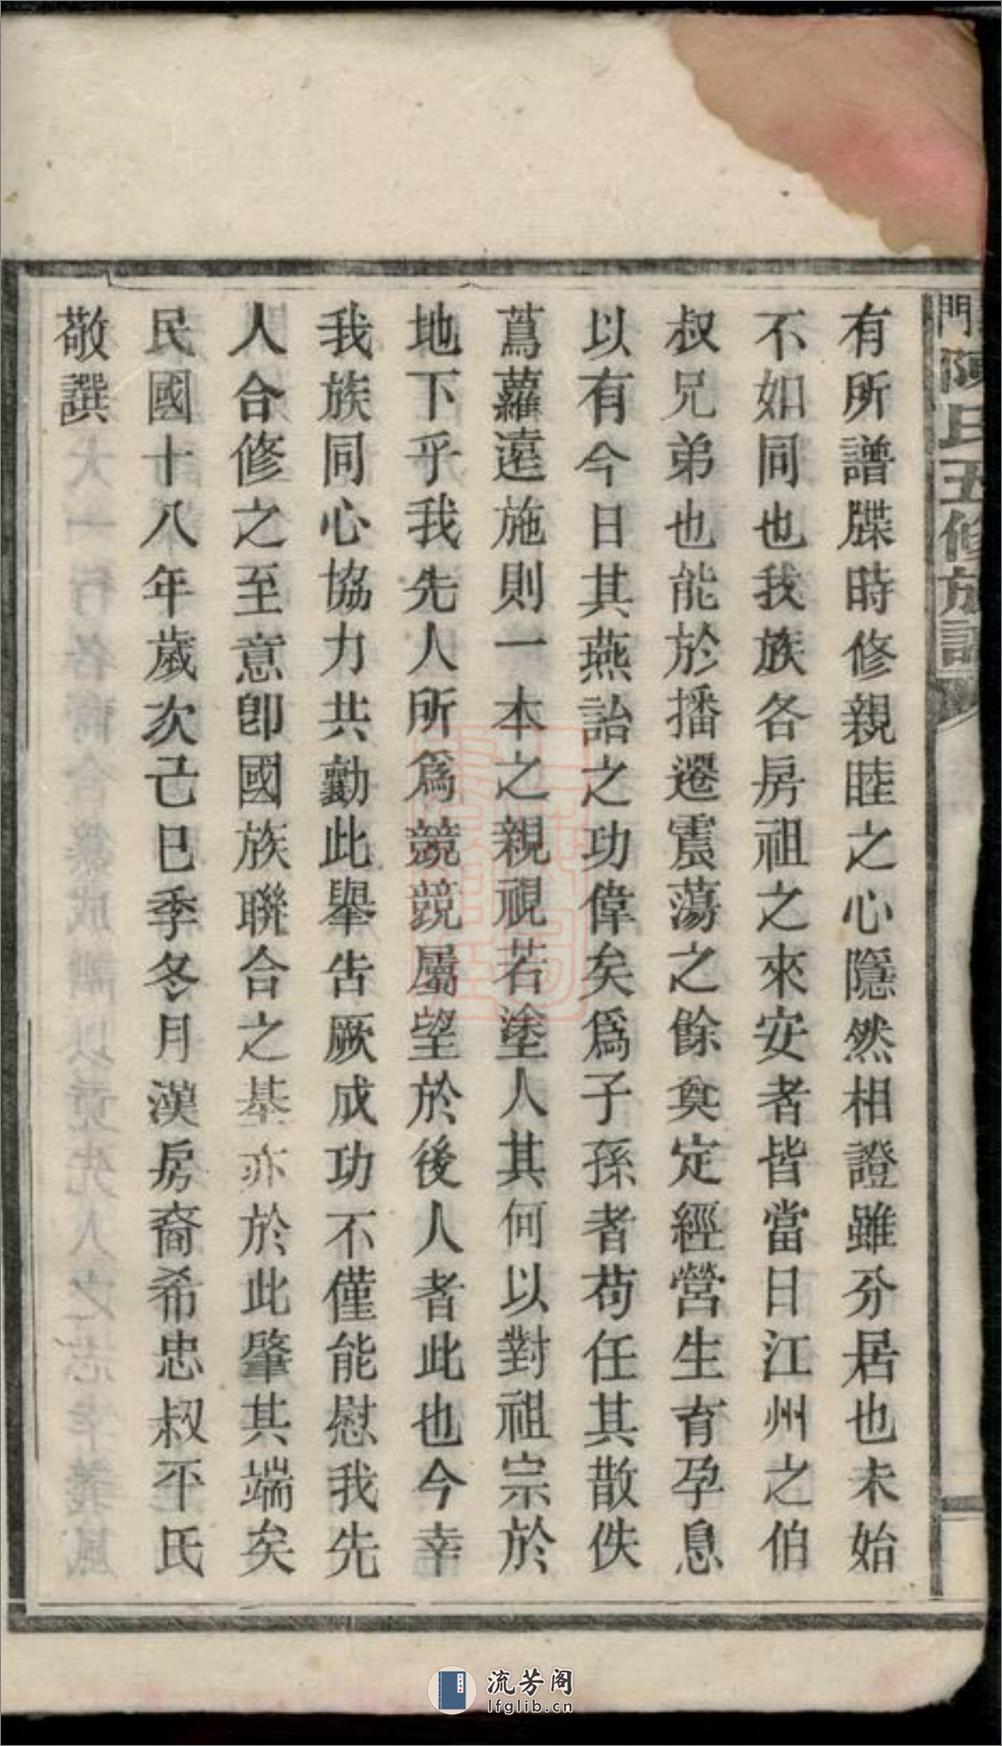 門陳氏五修族譜
有所譜牒時修親睦之心隱然相證雖分居也未始
不如同也我族各房祖之來安者皆當日江州之伯
叔兄弟也能於播遷震蕩之餘奠定經營生育孕息
以有今日其燕詒之功偉矣爲子孫者苟任其散佚
蔦蘿遠施則一本之親視若塗人其何以對祖宗於
地下乎我先人所爲競競屬望於後人者此也今幸
我族同心協力共勷此舉告厥成功不僅能慰我先
人合修之至意卽國族聯合之基亦於此肇其端矣
民國十八年歲次己巳季冬月漢房裔希忠叔平氏
敬譔
流芳阁
lfglib.cn